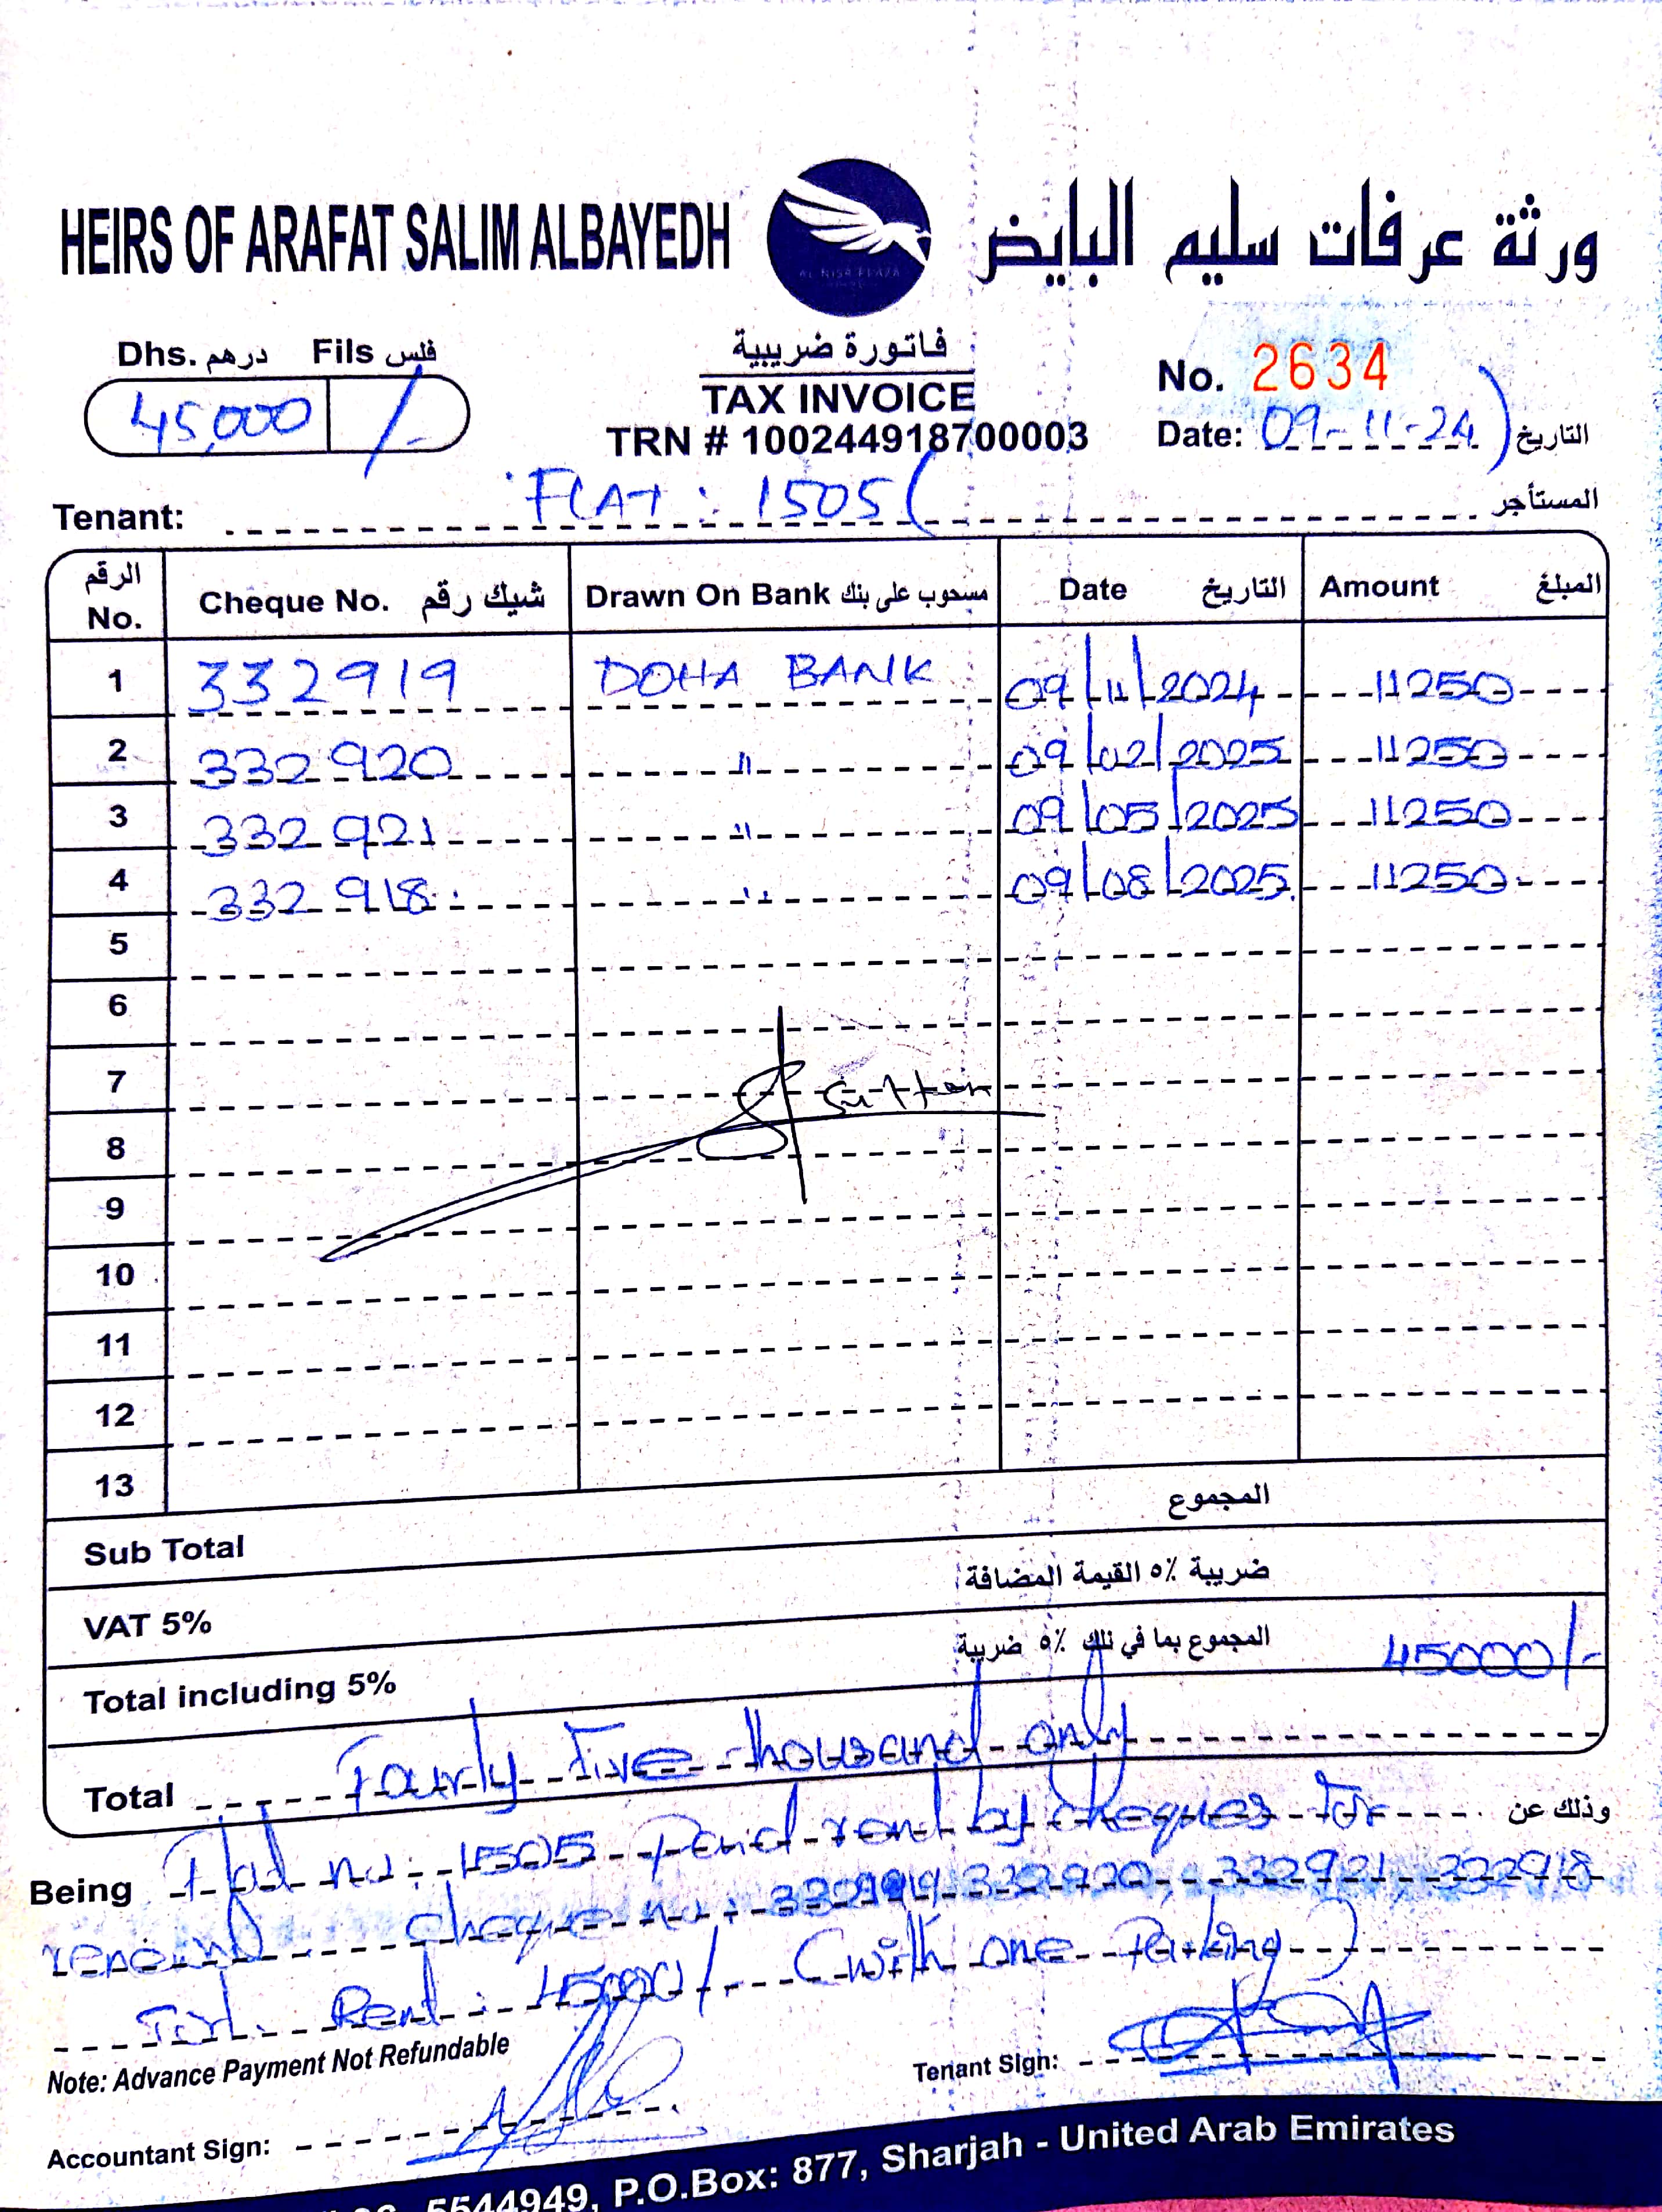 HEIRS OF ARAFAT SALIM ALBAYEDH
ورثة عرفات سليم البايض
Dhs. درهم Fils فلس
45,000 /-
فاتورة ضريبية
TAX INVOICE
TRN # 100244918700003
No. 2634
Date: 09-11-24 التاريخ
Tenant: FLAT : 1505 المستأجر
الرقم No. Cheque No. شيك رقم Drawn On Bank مسحوب على بنك Date التاريخ Amount المبلغ
1 332919 DOHA BANK 09/11/2024 11250
2 332920 " 09/02/2025 11250
3 332921 " 09/05/2025 11250
4 332918 " 09/08/2025 11250
5
6
7
8
9
10
11
12
13
Sub Total المجموع
VAT 5% ضريبة ٥٪ القيمة المضافة
Total including 5% المجموع بما في ذلك ٥٪ ضريبة 45000/-
Total Fourty Five thousand only
Being Flat no: 1505 Paid rent by cheques for وذلك عن
renewal cheque no: 332919, 332920, 332921, 332918
Rent: 45000/- (with one Parking)
Note: Advance Payment Not Refundable
Tenant Sign:
Accountant Sign:
5544949, P.O.Box: 877, Sharjah - United Arab Emirates